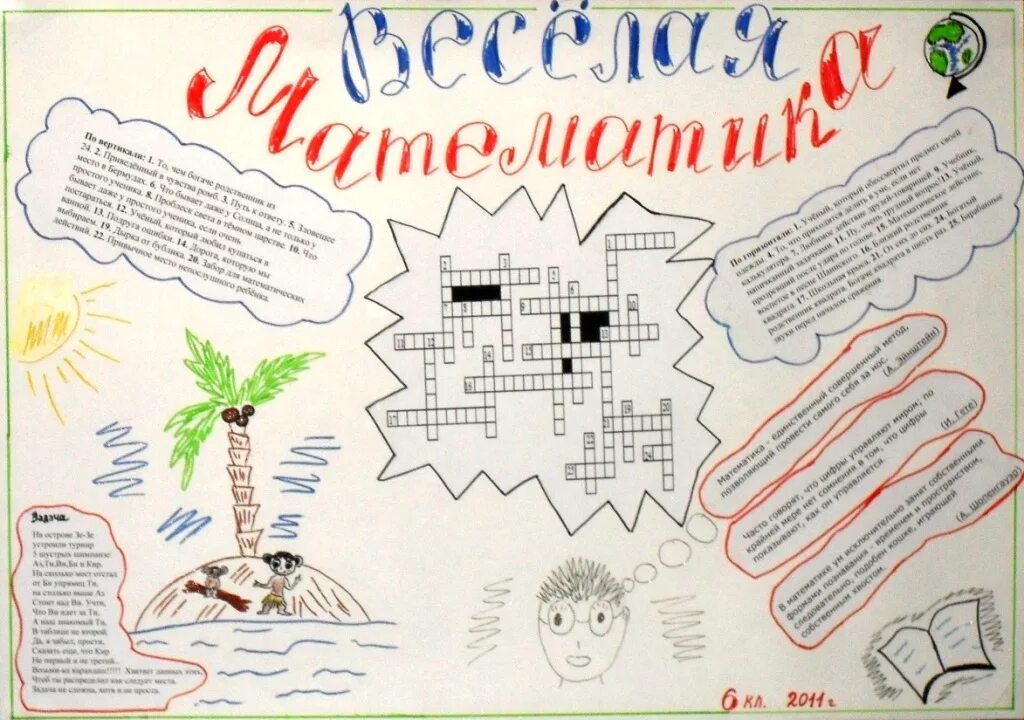 Весёлая
Математика
По вертикали: 1. То, чем богаче родственник из
24. 2. Приведённый в чувства ромб. 3. Путь к ответу. 5. Зловещее
место в Бермудах. 6. Что бывает даже у Солнца, а не только у
простого ученика. 8. Проблеск света в тёмном царстве. 10. Что
бывает даже у простого ученика, если очень
постараться. 12. Учёный, который любил купаться в
ванной. 13. Подруга ошибки. 14. Дорога, которую мы
выбираем. 19. Дырка от бублика. 20. Забор для математических
действий. 22. Привычное место непослушного ребёнка.
По горизонтали: 1. Учёный, который обессмертил предмет своей
одежды. 4. То, что приходится делать в уме, если нет
калькулятора. 7. Любимое действие друзей-товарищей. 9. Учебник,
напичканный задачками. 11. Ну, очень трудный вопрос! 13. Учёный,
прозревший после удара по голове. 15. Математическое действие,
воспетое в песне Шаинского. 16. Близкий родственник
квадрата. 17. Школьная крыса. 21. От сих до сих. 24. Богатый
родственник квадрата. Богаче квадрата в шесть раз. 25. Барабанные
звуки перед началом сражения.
Математика - единственный совершенный метод,
позволяющий провести самого себя за нос.
(А. Эйнштейн)
Часто говорят, что цифры управляют миром; по
крайней мере нет сомнения в том, что цифры
показывают, как он управляется.
(И. Гете)
В математике ум исключительно занят собственными
формами познавания - временем и пространством,
следовательно, подобен кошке, играющей
собственным хвостом.
(А. Шопенгауэр)
Задача
На острове Зе-Зе
устроили турнир
5 шустрых шимпанзе:
Аз,Ти,Ви,Би и Кир.
На сколько мест отстал
от Би упрямец Ти,
на столько выше Аз
Стоит над Ви. Учти,
Что Ви идет за Ти,
А наш знакомый Ти,
В таблице не второй.
Да, я забыл, прости,
Сказать еще, что Кир
Не первый и не третий..
Возьми-ка карандаш!!!!! Хватит данных этих,
Чтоб ты распределил как следует места.
Задача не сложна, хотя и не проста.
6 кл. 2011 г